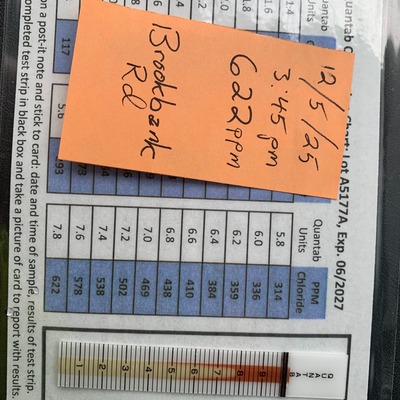 Chart: Lot A5177A, Exp. 06/2027
Units
12/5/25
3:45 pm
622 ppm
Brookbank
Rd
117
5.6
Quantab Units PPM Chloride
5.8 314
6.0 336
6.2 359
6.4 384
6.6 410
6.8 438
7.0 469
7.2 502
7.4 538
7.6 578
7.8 622
QUANTAB
9
8
7
6
5
4
3
2
1
on a post-it note and stick to card: date and time of sample, results of test strip.
ompleted test strip in black box and take a picture of card to report with results.